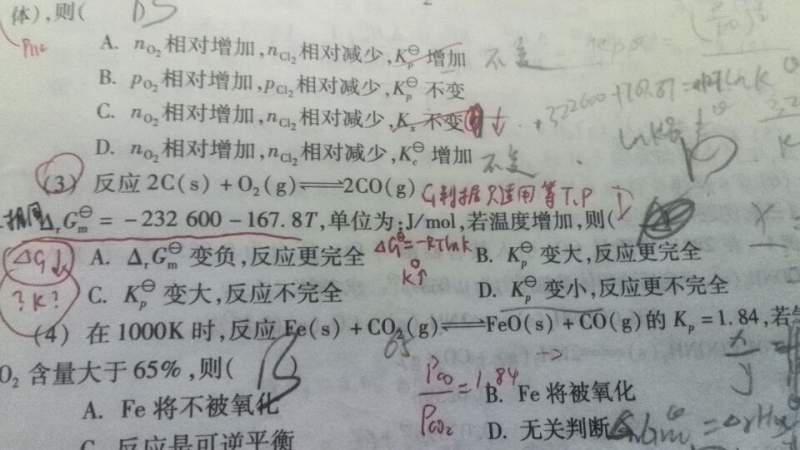 体),则(
A. nO₂相对增加,nCl₂相对减少,K⊖p 增加 不定
B. pO₂相对增加,pCl₂相对减少,K⊖p 不变
C. nO₂相对增加,nCl₂相对减少,Kx 不变 ↓
D. nO₂相对增加,nCl₂相对减少,K⊖c 增加 不定
(3) 反应 2C(s)+O₂(g)⇌2CO(g) G判据只适用等T.P
ΔrG⊖m=-232 600-167.8T,单位为:J/mol,若温度增加,则(
ΔG↓ A. ΔrG⊖m 变负,反应更完全 ΔG⊖=-RTlnK K↑ B. K⊖p 变大,反应更完全
?K? C. K⊖p 变大,反应不完全 D. K⊖p 变小,反应更不完全
(4) 在 1000K 时,反应 Fe(s)+CO₂(g)⇌FeO(s)+CO(g)的 Kp=1.84,若
O₂ 含量大于 65%,则( B
A. Fe 将不被氧化 PCO/PCO₂=1.84 B. Fe 将被氧化
C. 反应是可逆平衡 D. 无关判断